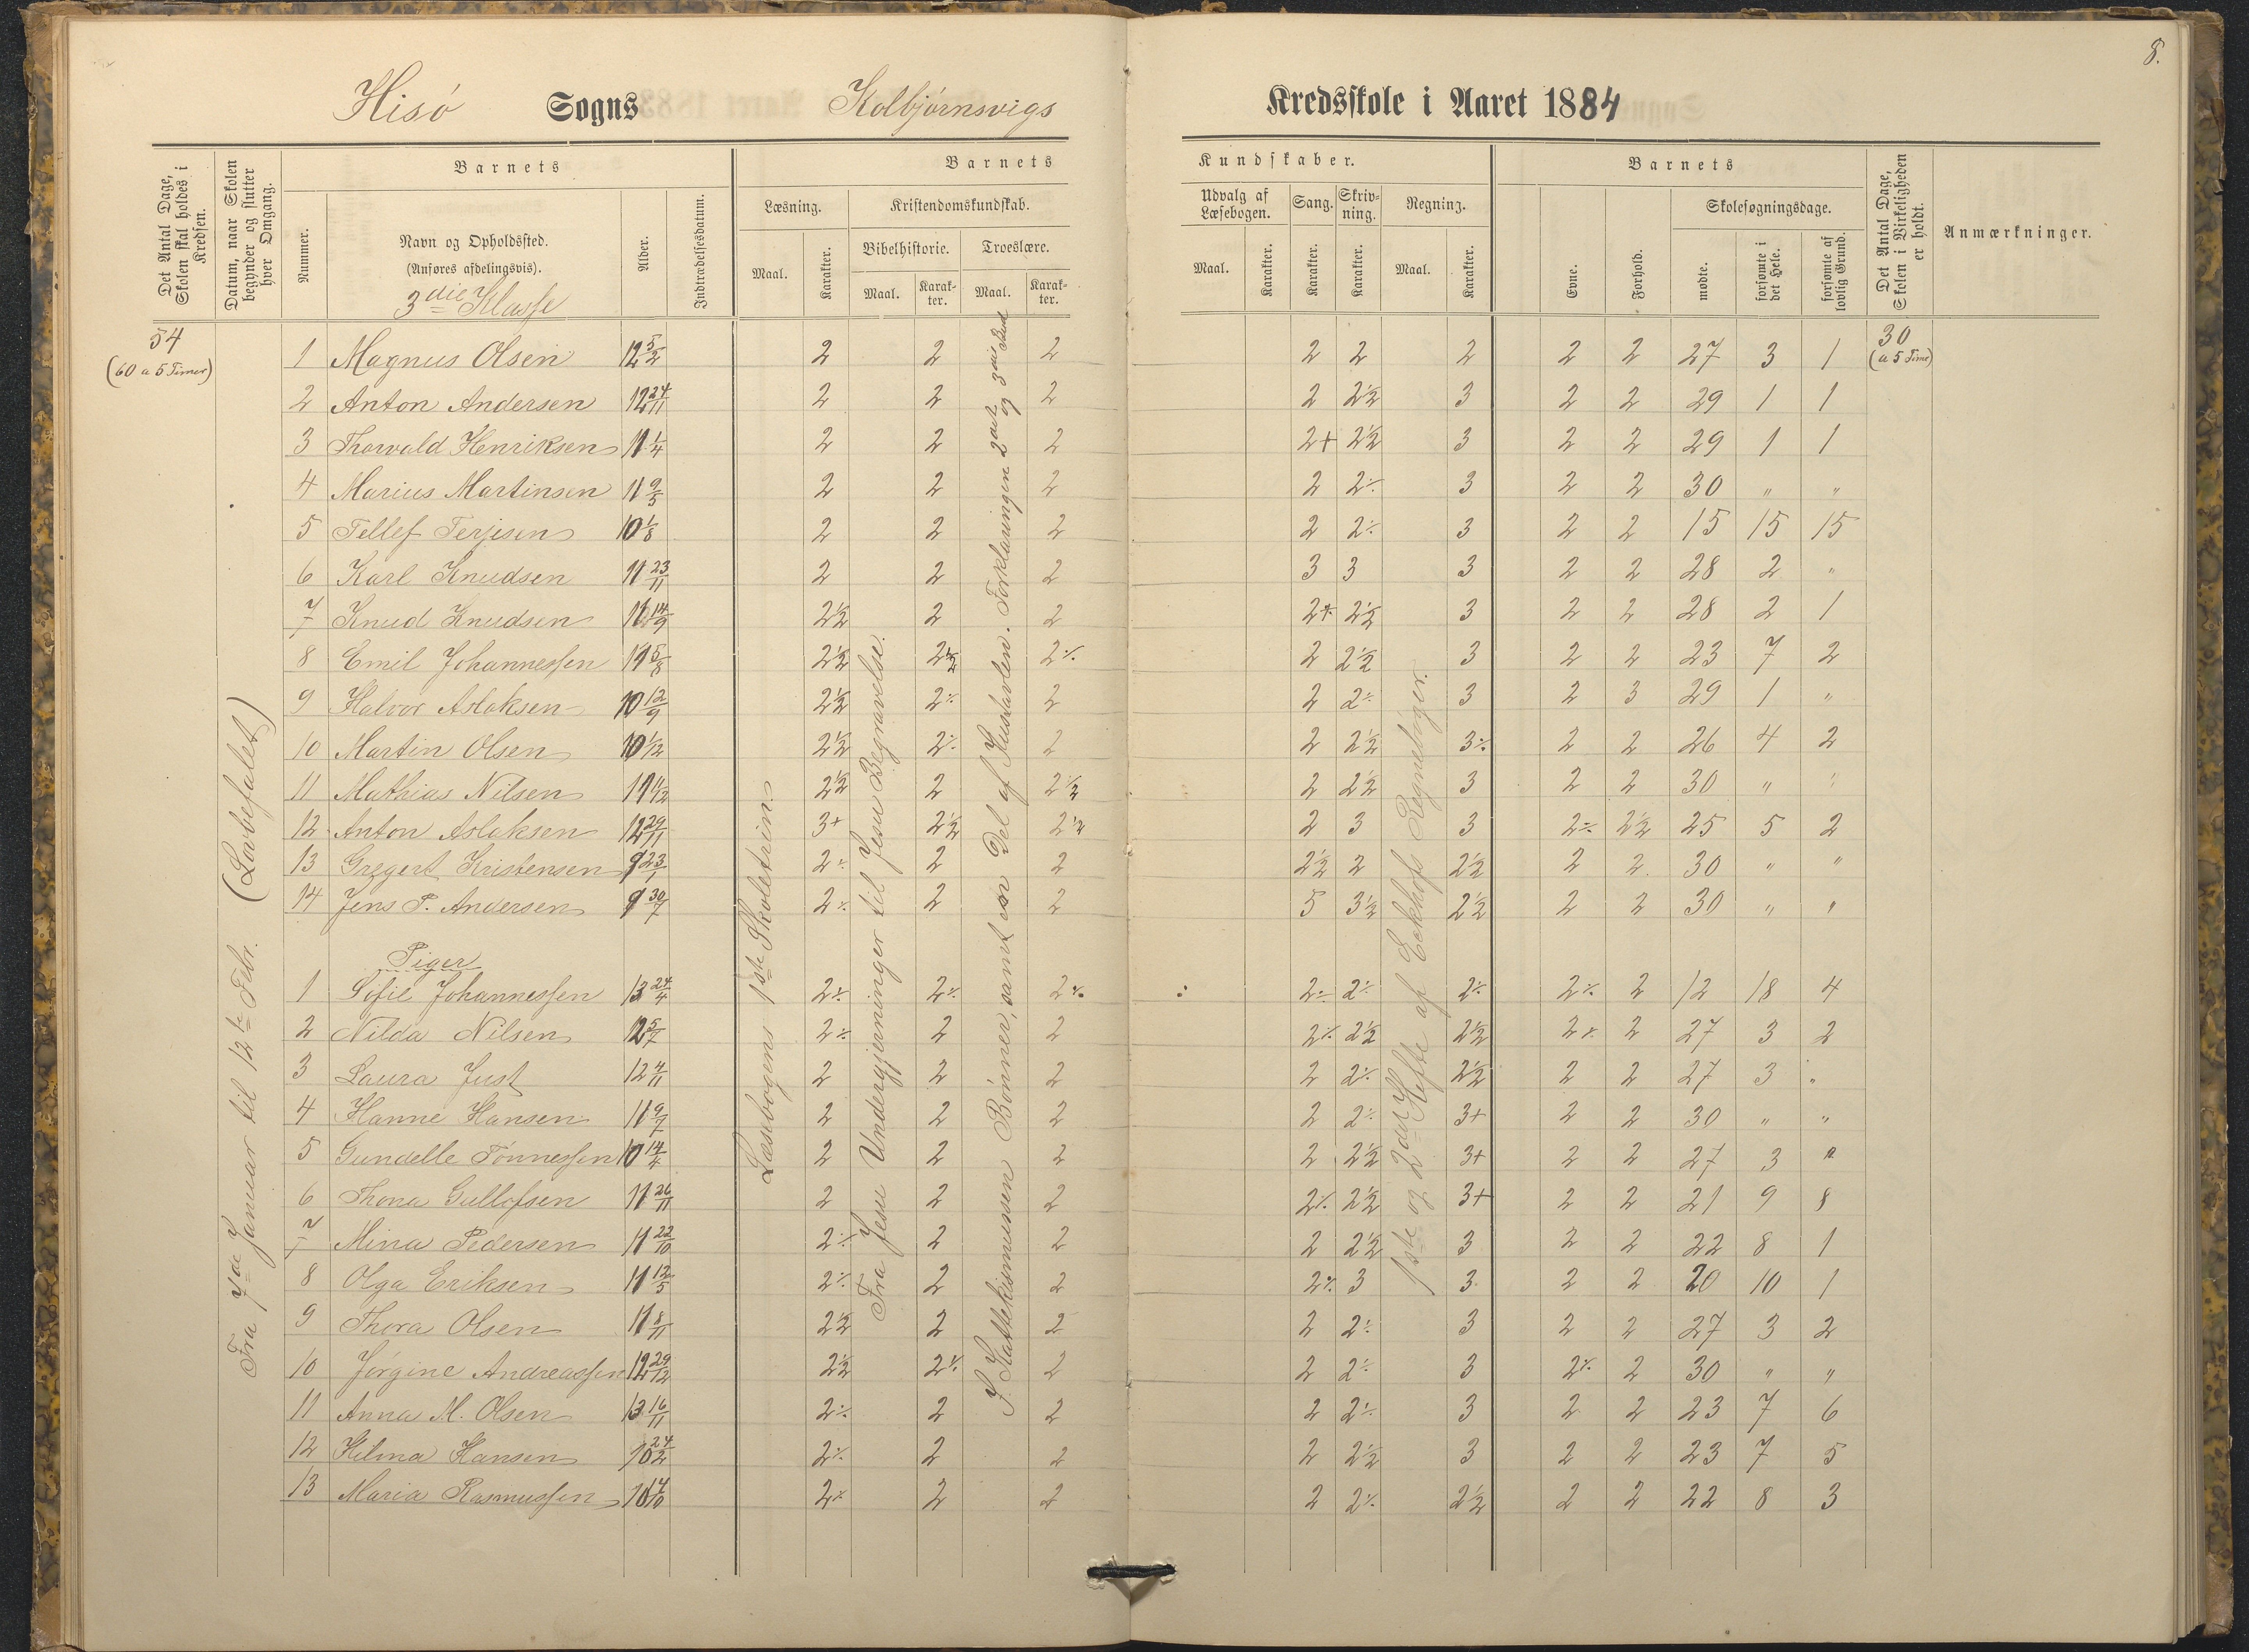 8.
Hisö Sogns Kolbjörnsvigs Kredsskole i Aaret 1884
Det Antal Dage, Skolen skal holdes i Kredsen.
Datum, naar Skolen begynder og slutter hver Omgang.
Barnets
Nummer.
Navn og Opholdssted.
(Anføres afdelingsvis).
3die Klasse
Alder.
Indtrædelsesdatum.
Barnets Kundskaber.
Læsning.
Maal. Karakter.
Kristendomskundskab.
Bibelhistorie.
Maal. Karakter.
Troeslære.
Maal. Karakter.
Udvalg af Læsebogen.
Maal. Karakter.
Sang. Karakter.
Skrivning. Karakter.
Regning.
Maal. Karakter.
Barnets
Evne. Forhold.
Skolesøgningsdage.
mødte. forsømte i det Hele. forsømte af lovlig Grund.
Det Antal Dage, Skolen i Virkeligheden er holdt.
Anmærkninger.
54
(60 a 5 Timer)
30
(a 5 Time)
Fra 7de Januar til 12te Febr. (Lovbefalet)
Læsebogens 1ste Skoletrin
Fra Jesu Undergjerninger til Jesu Begravelse.
Forklaringen 2det og 3die Bud
1ste og 2det Hefte af Eckhofs Regnebøger.
1 Magnus Olsen 12 5/2 2 2 2 2 2 2 2 2 27 3 1
2 Anton Andersen 12 24/11 2 2 2 2 2½ 3 2 2 29 1 1
3 Thorvald Henriksen 11 1/4 2 2 2 2+ 2½ 3 2 2 29 1 1
4 Marius Martinsen 11 9/5 2 2 2 2 2÷ 3 2 2 30 " "
5 Tellef Terjesen 10 1/8 2 2 2 2 2÷ 3 2 2 15 15 15
6 Karl Knudsen 11 23/11 2 2 2 3 3 3 2 2 28 2 "
7 Knud Knudsen 14/9 2½ 2 2 2+ 2½ 3 2 2 28 2 1
8 Emil Johannessen 11 5/8 2½ 2½ 2÷ 2 2½ 3 2 2 23 7 2
9 Halvor Aslaksen 10 12/9 2½ 2÷ 2 2 2÷ 3 2 3 29 1 "
10 Martin Olsen 10 1/12 2½ 2÷ 2 2 2½ 3÷ 2 2 26 4 2
11 Mathias Nilsen 11 2½ 2 2½ 2 2½ 3 2 2 30 " "
12 Anton Aslaksen 12 29/11 3+ 2½ 2½ 2 3 3 2÷ 2½ 25 5 2
13 Gregert Kristensen 9 23/1 2÷ 2 2 2½ 2 2½ 2 2 30 " "
14 Jens P. Andersen 9 30/7 2÷ 2 2 5 3½ 2½ 2 2 30 " "
Piger
1 Sofie Johannessen 13 24/4 2÷ 2÷ 2÷ 2÷ 2÷ 2÷ 2÷ 2 12 18 4
2 Nilda Nilsen 12 5/7 2÷ 2 2 2÷ 2½ 2½ 2÷ 2 27 3 2
3 Laura Just 12 4/11 2 2 2 2 2÷ 2½ 2 2 27 3 "
4 Hanne Hansen 11 9/7 2 2 2 2 2÷ 3+ 2 2 30 " "
5 Gundelle Tönnessen 10 14/4 2 2 2 2 2½ 3+ 2 2 27 3 "
6 Thona Gullofsen 11 26/11 2 2 2 2÷ 2½ 3+ 2 2 21 9 8
7 Mina Pedersen 11 22/10 2÷ 2 2 2 2½ 3 2 2 22 8 1
8 Olga Eriksen 11 12/5 2÷ 2 2 2÷ 3 3 2 2 20 10 1
9 Thora Olsen 11 8/11 2½ 2 2 2 2÷ 3 2 2 27 3 2
10 Jörgine Andreassen 12 29/12 2½ 2÷ 2 2 2÷ 3 2÷ 2 30 " "
11 Anna M. Olsen 13 16/11 2÷ 2 2 2 2÷ 3 2 2 23 7 6
12 Hilma Hansen 10 24/2 2÷ 2 2 2 2½ 3 2 2 23 7 5
13 Maria Rasmussen 10 4/10 2÷ 2 2 2 2÷ 2½ 2 2 22 8 3